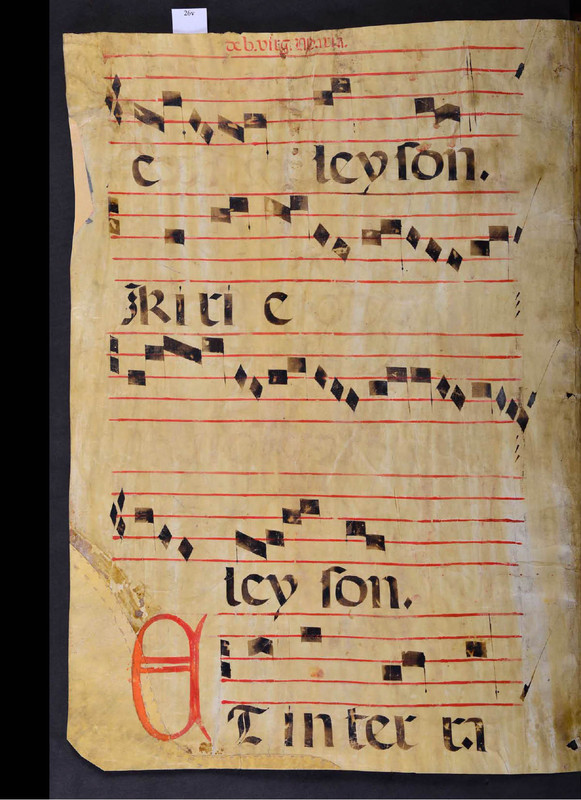 26v
de b. virg. Maria.
e leyson.
Kiri e
ley son.
ET in ter ra